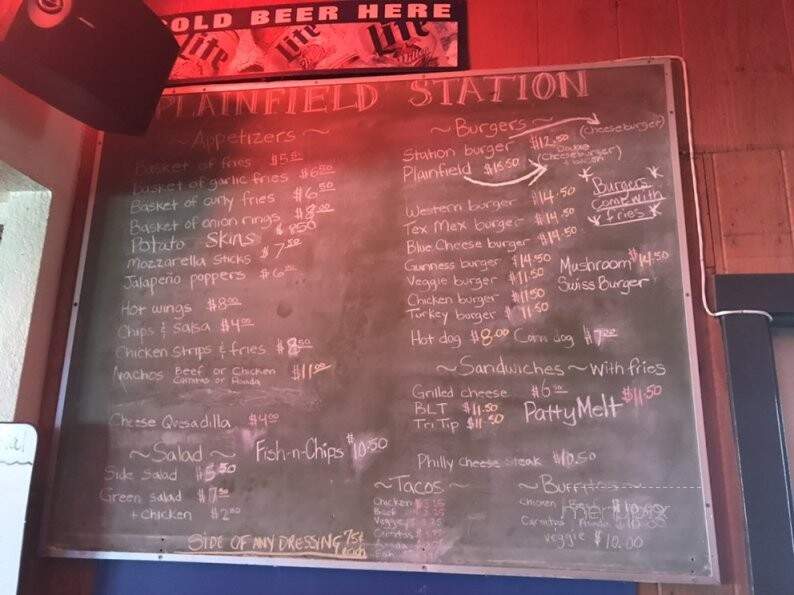 COLD BEER HERE
Lite Lite Lite
PLAINFIELD STATION
~Appetizers~
Basket of fries $5.50
Basket of garlic fries $6.50
Basket of curly fries $6.50
Basket of onion rings $8.00
Potato Skins $8.50
Mozzarella sticks $7.50
Jalapeño poppers $6.50
Hot wings $8.00
Chips & Salsa $4.00
Chicken strips & fries $8.50
Nachos Beef or Chicken $11.00
Carnitas or Asada
Cheese Quesadilla $4.00
~Salad~ Fish-n-Chips $10.50
Side Salad $5.50
Green salad $7.50
+ Chicken $2.00
SIDE OF ANY DRESSING 75¢ each
~Burgers~
Station burger $12.50 (Cheeseburger)
Plainfield $15.50 (Double Cheeseburger + bacon)
Burgers come with fries
Western burger $14.50
Tex Mex burger $14.50
Blue Cheese burger $14.50
Gunness burger $14.50
Veggie burger $11.50
Mushroom $14.50
Swiss Burger
Chicken burger $11.50
Turkey burger $11.50
Hot dog $8.00 Corn dog
~Sandwiches~ With fries
Grilled cheese
BLT $11.50
Tri Tip $11.50
Patty Melt $11.50
Philly cheese steak $10.50
~Tacos~
Chicken
Beef
Veggie
Carnitas
Asada
Fish
~Burritos~
Chicken
Carnitas Asada
Veggie $10.00